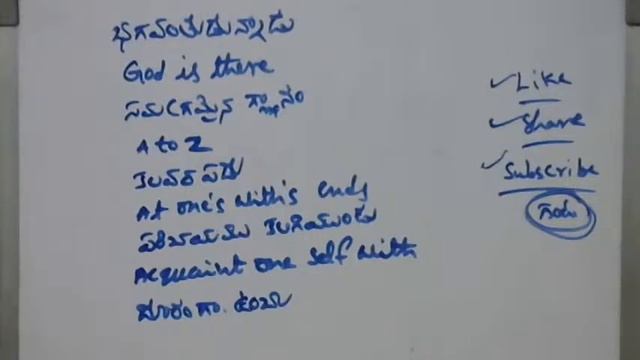 భగవంతుడున్నాడు
God is there
సమగ్రమైన జ్ఞానం
A to Z
కలవరపడు
At one's with's ends
పరిచయము కలిగియుండు
Acquaint one self with
దూరంగా ఉండు
Like
Share
Subscribe